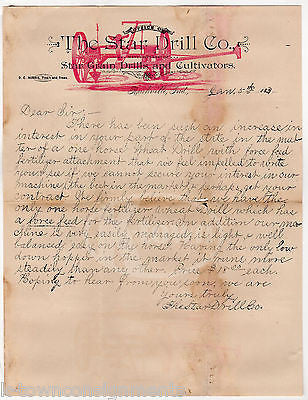 OFFICE OF
The Star Drill Co.,
Star Grain Drills and Cultivators.
Rushville, Ind., Jan. 5th 189
Dear Sir:
There has been such an increase in
interest in your part of the state in the mat-
ter of a one horse Wheat Drill with force feed
fertilizer attachment that we feel impelled to write
you to see if we cannot secure your interest in our
machine, (the best in the market) & perhaps, get your
contract. We firmly believe that we have the
only one horse Fertilizer Wheat Drill which has
a force feed for the fertilizer. In addition our ma-
chine is very easily managed, is light, & well
balanced, easy on the horse. Having the only low
down hopper in the market, it runs more
steadily than any other. Price $18.00 each.
Hoping to hear from you soon, we are
Yours truly,
The Star Drill Co.